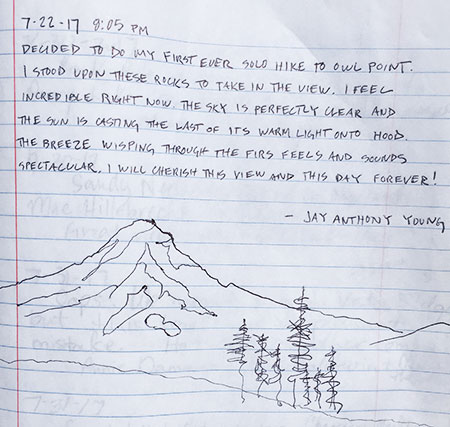 7-22-17 8:05 PM
DECIDED TO DO MY FIRST EVER SOLO HIKE TO OWL POINT.
I STOOD UPON THESE ROCKS TO TAKE IN THE VIEW. I FEEL
INCREDIBLE RIGHT NOW. THE SKY IS PERFECTLY CLEAR AND
THE SUN IS CASTING THE LAST OF ITS WARM LIGHT ONTO HOOD.
THE BREEZE WISPING THROUGH THE FIRS FEELS AND SOUNDS
SPECTACULAR. I WILL CHERISH THIS VIEW AND THIS DAY FOREVER!
- JAY ANTHONY YOUNG